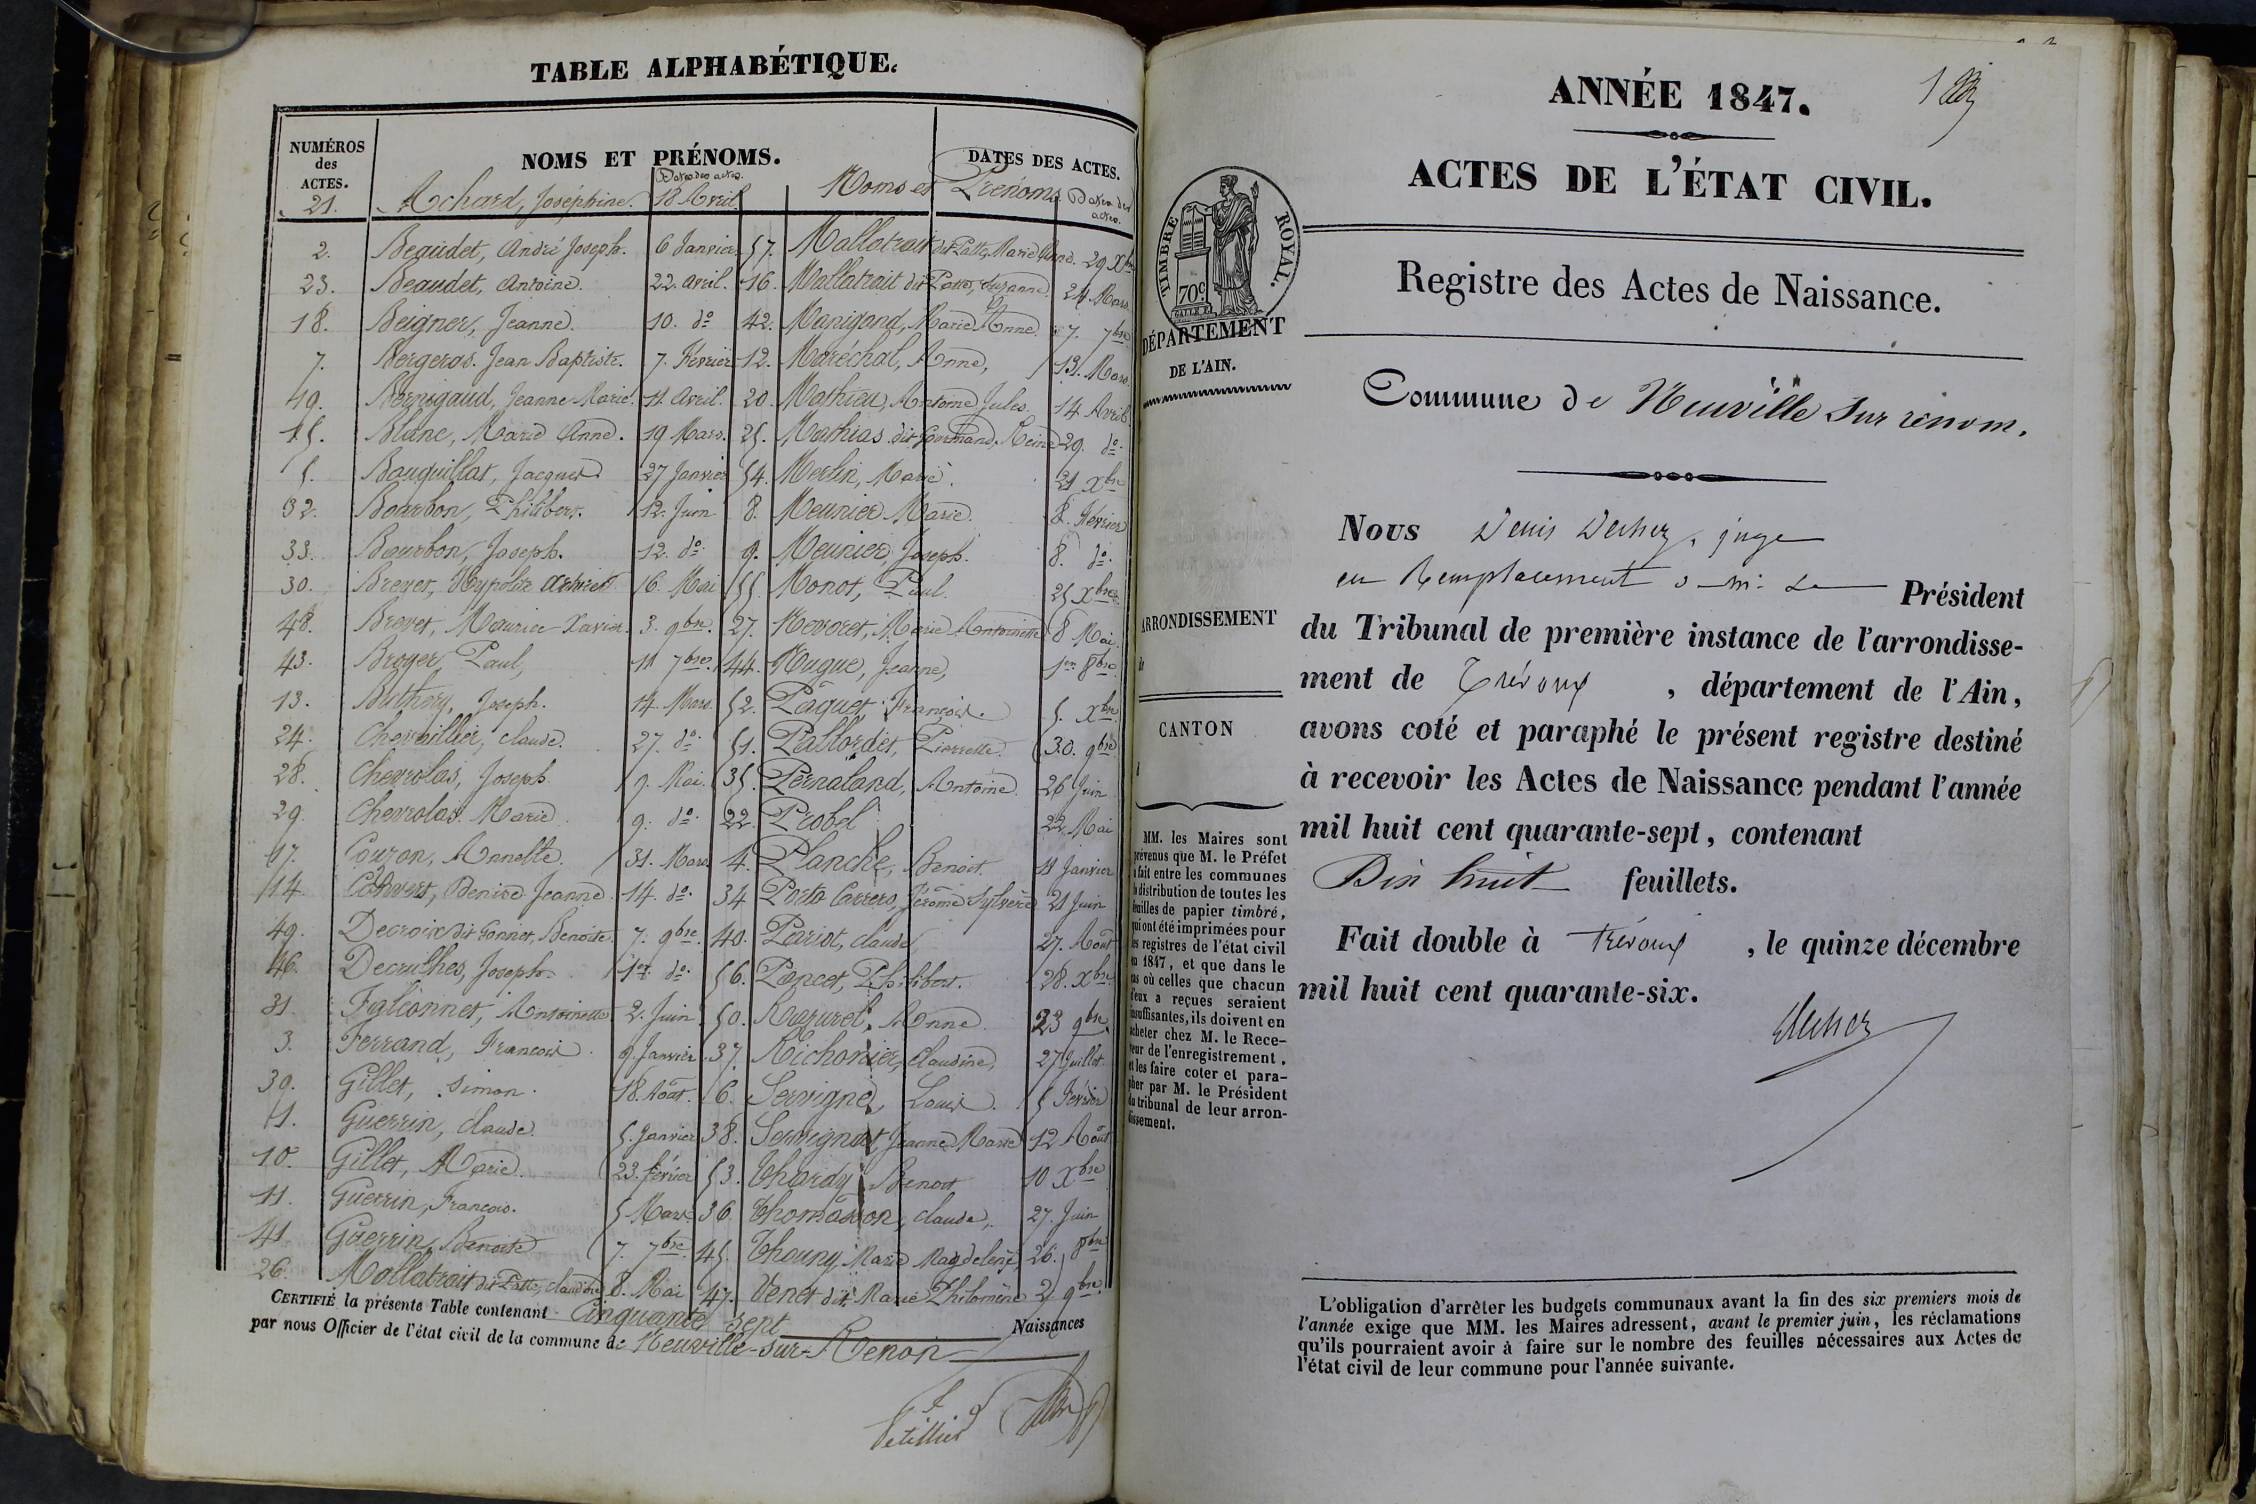 TABLE ALPHABÉTIQUE.
NUMÉROS des ACTES.
NOMS ET PRÉNOMS.
DATES DES ACTES.
Dates des actes.
Noms et Prénoms
Dates des actes.
21. Achard, Joséphine. 18 Avril.
2. Beaudet, André Joseph. 6 Janvier 57. Mallatrait dit Patte, Marie Anne. 29 Xbre
23. Beaudet, Antoine. 22. avril. 16. Mallatrait dit Patte, Suzanne. 24. Mars
18. Beigner, Jeanne. 10. do 42. Manigand, Marie Anne. 7. 7bre
7. Bergeros. Jean Baptiste. 7. Février 12. Maréchal, Anne, 13. Mars.
19. Bernigaud, Jeanne Marie. 11. Avril. 20. Mathieu, Antoine Jules, 14 Avril
15. Blanc, Marie Anne. 19 Mars. 25. Mathias dit Gourmand, Reine 29. do.
5. Bouquillat, Jacques 27 Janvier 54. Merlin, Marie. 21 Xbre
32. Bourbon, Philibert. 12. Juin 8. Meunier Marie. 8. Février
33. Bourbon, Joseph. 12. do. 9. Meunier Joseph. 8. do.
30. Brevet, Hypolite 16. Mai 55. Monot, Paul. 25 Xbre
48. Brevet, Maurice Xavier. 3. 9bre. 27. Novoret, Marie Antoinette 8 Mai
43. Broyer, Paul, 11 7bre. 44. Nugue, Jeanne, 1er 8bre
13. Buthery, Joseph. 14. Mars. 52. Paquet François. 5. Xbre
24. Chevaillier, claude. 27. do. 51. Pallordet, Pierrette. 30. 9bre
28. Chevrolas, Joseph 9. Mai. 35. Pernaland, Antoine. 26 Juin
29. Chevrolas. Marie 9. do. 22. Probel 22. Mai
17. Couzon, Annette. 31. Mars 4. Planche, Benoit. 11 Janvier
14. Convert, Denise Jeanne 14. do. 34 Porto Carrero, Jérôme Sylvère 21 Juin
49. Decroix dit Gonnet, Benoite. 7. 9bre. 40. Periot, claude 27. Aout
46. Decrulhes, Joseph. 1er. do. 56. Poncet, Philibert. 28. Xbre
31. Falconnet, Antoinette 2. Juin 50. Razurel, Anne. 23 9bre
3. Ferrand, François. 9. Janvier 37. Richonier, Claudine 27 Juillet
39. Gillet, Simon. 18. Aoat. 6. Servigne, Louis. 5 Février
1. Guerrin, claude. 5. Janvier 38. Servignat, Jeanne Marie 12 Aout
10. Gillet, Marie. 23. février 53. Thardy Benoit 10 Xbre
11. Guerrin, François. 5 Mars 36. Thomasson, claude, 27. Juin
41. Guerrin, Benoite 7. 7bre. 45. Thouny, Marie Magdeleine 26. 8bre
26. Mallatrait dit Patte, claudine 8. Mai 47. Venet dit Marie Philomène 2. 9bre.
CERTIFIÉ la présente Table contenant Cinquante Sept Naissances
par nous Officier de l'état civil de la commune de Neuville-sur-Renon
ANNÉE 1847.
ACTES DE L'ÉTAT CIVIL.
TIMBRE ROYAL.
70c
DÉPARTEMENT
DE L'AIN.
Registre des Actes de Naissance.
Commune de Neuville Sur renom.
Nous Denis Dechez, juge
en Remplacement Président
ARRONDISSEMENT
du Tribunal de première instance de l'arrondisse-
ment de Trévoux , département de l'Ain,
avons coté et paraphé le présent registre destiné
à recevoir les Actes de Naissance pendant l'année
mil huit cent quarante-sept, contenant
Dix huit feuillets.
Fait double à Trévoux , le quinze décembre
mil huit cent quarante-six.
Dechez
CANTON
MM. les Maires sont
prévenus que M. le Préfet
a fait entre les communes
la distribution de toutes les
feuilles de papier timbré,
qui ont été imprimées pour
les registres de l'état civil
en 1847, et que dans le
cas où celles que chacun
d'eux a reçues seraient
insuffisantes, ils doivent en
acheter chez M. le Rece-
veur de l'enregistrement.
et les faire coter et para-
pher par M. le Président
du tribunal de leur arron-
dissement.
L'obligation d'arrêter les budgets communaux avant la fin des six premiers mois de
l'année exige que MM. les Maires adressent, avant le premier juin, les réclamations
qu'ils pourraient avoir à faire sur le nombre des feuilles nécessaires aux Actes de
l'état civil de leur commune pour l'année suivante.